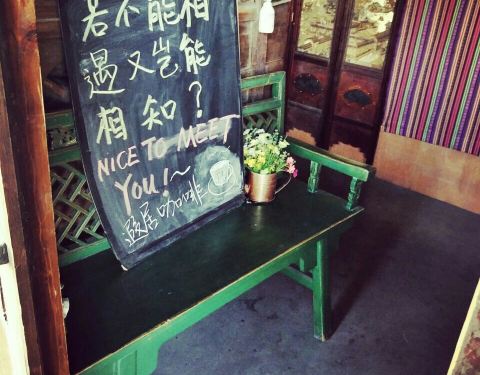 若不能相
遇又岂能
相知？
NICE TO MEET
YOU!~
居咖啡